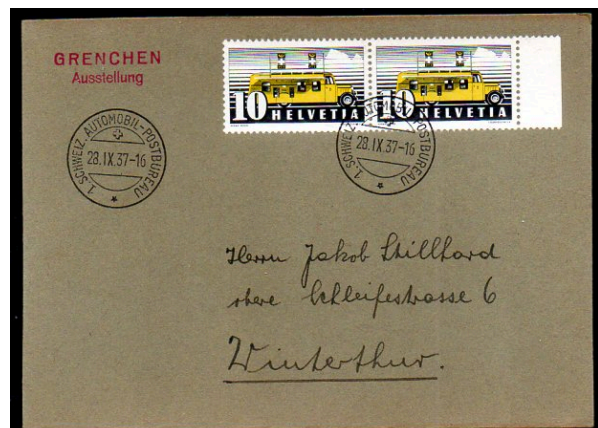 GRENCHEN
Ausstellung
10 HELVETIA
10 HELVETIA
1. SCHWEIZ. AUTOMOBIL-POSTBUREAU
28.IX.37-16
1. SCHWEIZ. AUTOMOBIL-POSTBUREAU
28.IX.37-16
Herrn Jakob Stillhard
obere Schleifestrasse 6
Winterthur.